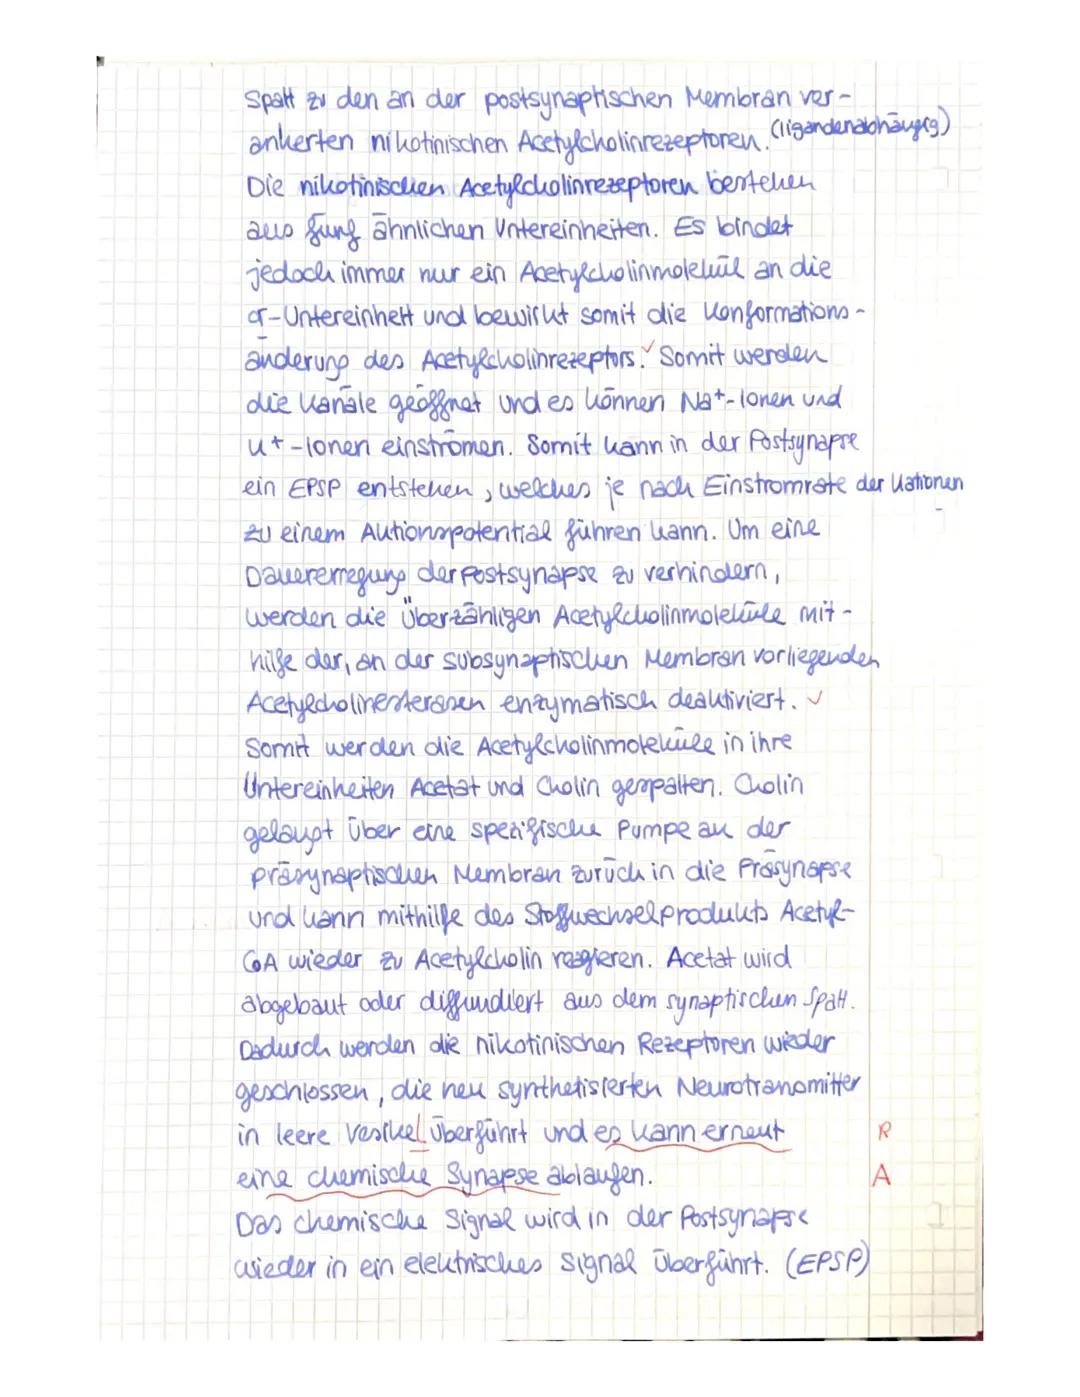 Spalt zu den an der postsynaptischen Membran ver-
ankerten nikotinischen Acetylcholinrezeptoren. (ligandenabhängig)
Die nikotinischen Acetylcholinrezeptoren bestehen
aus fünf ähnlichen Untereinheiten. Es bindet
jedoch immer nur ein Acetylcholinmolekül an die
α-Untereinheit und bewirkt somit die Konformations-
änderung des Acetylcholinrezeptors. ✓ Somit werden
die Kanäle geöffnet und es können Na+-Ionen und
K+-Ionen einströmen. Somit kann in der Postsynapse
ein EPSP entstehen, welches je nach Einstromrate der Kationen
zu einem Aktionspotential führen kann. Um eine
Dauererregung der Postsynapse zu verhindern,
werden die überzähligen Acetylcholinmoleküle mit-
hilfe der, an der subsynaptischen Membran vorliegenden
Acetylcholinesterasen enzymatisch deaktiviert. ✓
Somit werden die Acetylcholinmoleküle in ihre
Untereinheiten Acetat und Cholin gespalten. Cholin
gelangt über eine spezifische Pumpe an der
präsynaptischen Membran zurück in die Präsynapse
und kann mithilfe des Stoffwechselprodukts Acetyl-
CoA wieder zu Acetylcholin reagieren. Acetat wird
abgebaut oder diffundiert aus dem synaptischen Spalt.
Dadurch werden die nikotinischen Rezeptoren wieder
geschlossen, die neu synthetisierten Neurotransmitter
in leere Vesikel überführt und es kann erneut R
eine chemische Synapse ablaufen. A
Das chemische Signal wird in der Postsynapse
wieder in ein elektrisches Signal überführt. (EPSP)